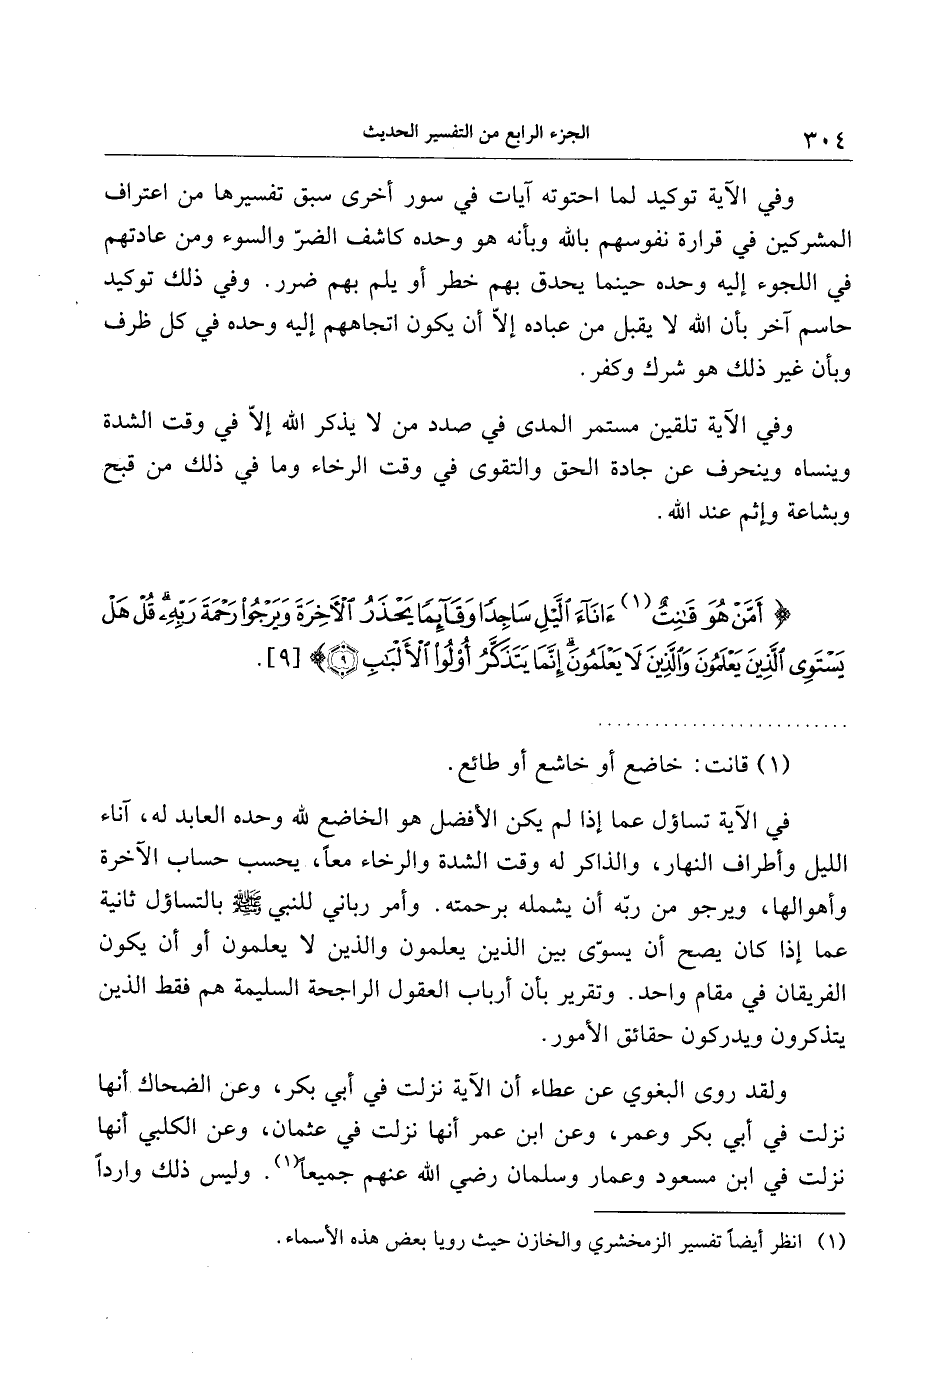 ٣٠٤ الجزء الرابع من التفسير الحديث
وفي الآية توكيد لما احتوته آيات في سور أخرى سبق تفسيرها من اعتراف
المشركين في قرارة نفوسهم بالله وبأنه هو وحده كاشف الضرّ والسوء ومن عادتهم
في اللجوء إليه وحده حينما يحدق بهم خطر أو يلم بهم ضرر. وفي ذلك توكيد
حاسم آخر بأن الله لا يقبل من عباده إلاّ أن يكون اتجاههم إليه وحده في كل ظرف
وبأن غير ذلك هو شرك وكفر.
وفي الآية تلقين مستمر المدى في صدد من لا يذكر الله إلاّ في وقت الشدة
وينساه وينحرف عن جادة الحق والتقوى في وقت الرخاء وما في ذلك من قبح
وبشاعة وإثم عند الله.
﴿ أَمَّنْ هُوَ قَٰنِتٌ (١) ءَانَآءَ ٱلَّيْلِ سَاجِدًا وَقَآئِمًا يَحْذَرُ ٱلْأَخِرَةَ وَيَرْجُوا۟ رَحْمَةَ رَبِّهِۦۗ قُلْ هَلْ
يَسْتَوِى ٱلَّذِينَ يَعْلَمُونَ وَٱلَّذِينَ لَا يَعْلَمُونَۗ إِنَّمَا يَتَذَكَّرُ أُو۟لُوا۟ ٱلْأَلْبَٰبِ ٩﴾ [٩].
..........................
(١) قانت: خاضع أو خاشع أو طائع.
في الآية تساؤل عما إذا لم يكن الأفضل هو الخاضع لله وحده العابد له، آناء
الليل وأطراف النهار، والذاكر له وقت الشدة والرخاء معاً، يحسب حساب الآخرة
وأهوالها، ويرجو من ربّه أن يشمله برحمته. وأمر رباني للنبي ﷺ بالتساؤل ثانية
عما إذا كان يصح أن يسوّى بين الذين يعلمون والذين لا يعلمون أو أن يكون
الفريقان في مقام واحد. وتقرير بأن أرباب العقول الراجحة السليمة هم فقط الذين
يتذكرون ويدركون حقائق الأمور.
ولقد روى البغوي عن عطاء أن الآية نزلت في أبي بكر، وعن الضحاك أنها
نزلت في أبي بكر وعمر، وعن ابن عمر أنها نزلت في عثمان، وعن الكلبي أنها
نزلت في ابن مسعود وعمار وسلمان رضي الله عنهم جميعاً(١). وليس ذلك وارداً
(١) انظر أيضاً تفسير الزمخشري والخازن حيث رويا بعض هذه الأسماء.